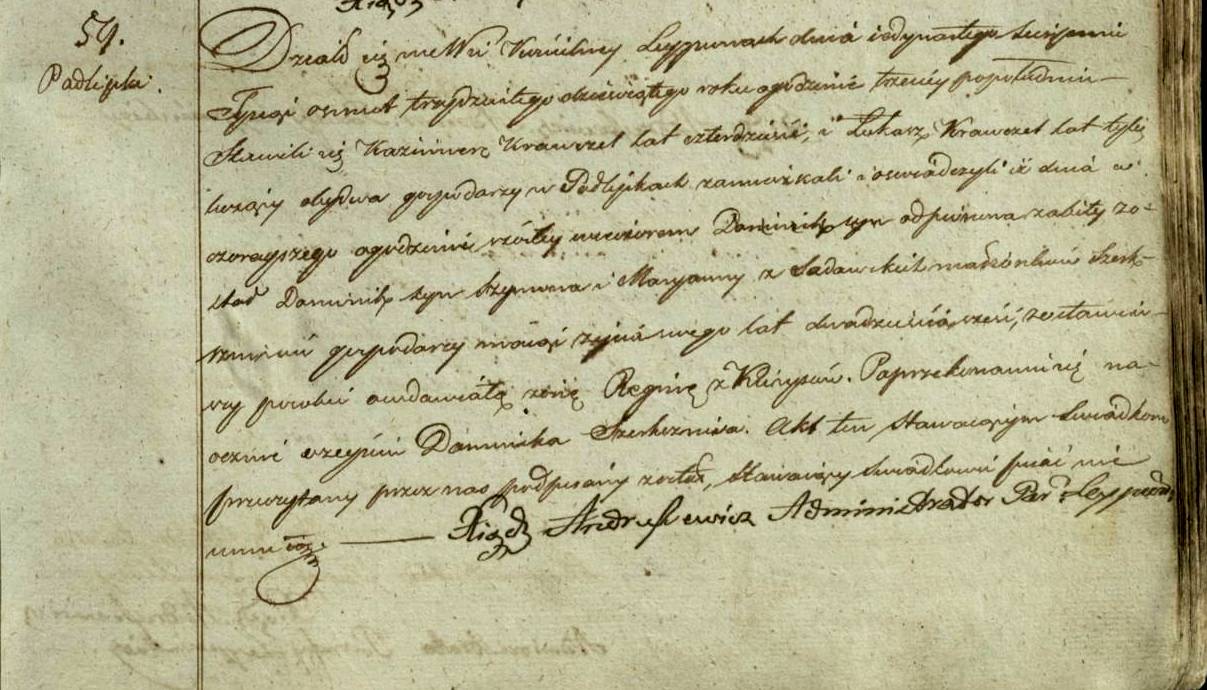 Xiądz
59.
Padlipki.
Działo się we Wsi Kościelney Leypunach dnia iedynastego Sierpnia
Tysiąc osmset trzydziestego dziewiątego roku o godzinie trzeciey popołudniu
Stawili się Kazimierz Krawczel lat czterdzieści, i Łukasz Krawczel lat tyleż
liczący obydwa gospodarzy w Padlipkach zamieszkali i oswiadczyli iż dnia w
czorayszego o godzinie szóstey wieczorem Dominik syn od pioruna zabity zo=
stał Dominik syn Szymona i Maryanny z Sadawskich małżonków Szerk=
sznisów gospodarzy maiąc życia swego lat dwadzieścia sześć, zostawiw=
szy po sobie owdowiałą żonę Reginę z Klirysów. Po przekonaniu się na=
ocznie o zeyściu Dominika Szerksznisa. Akt ten stawaiącym Swiadkom
przeczytany przez nas podpisany został, stawaiący Swiadkowie pisać nie
umieią. — Xiądz Andruszkewicz Administrador Par: Leypuń: